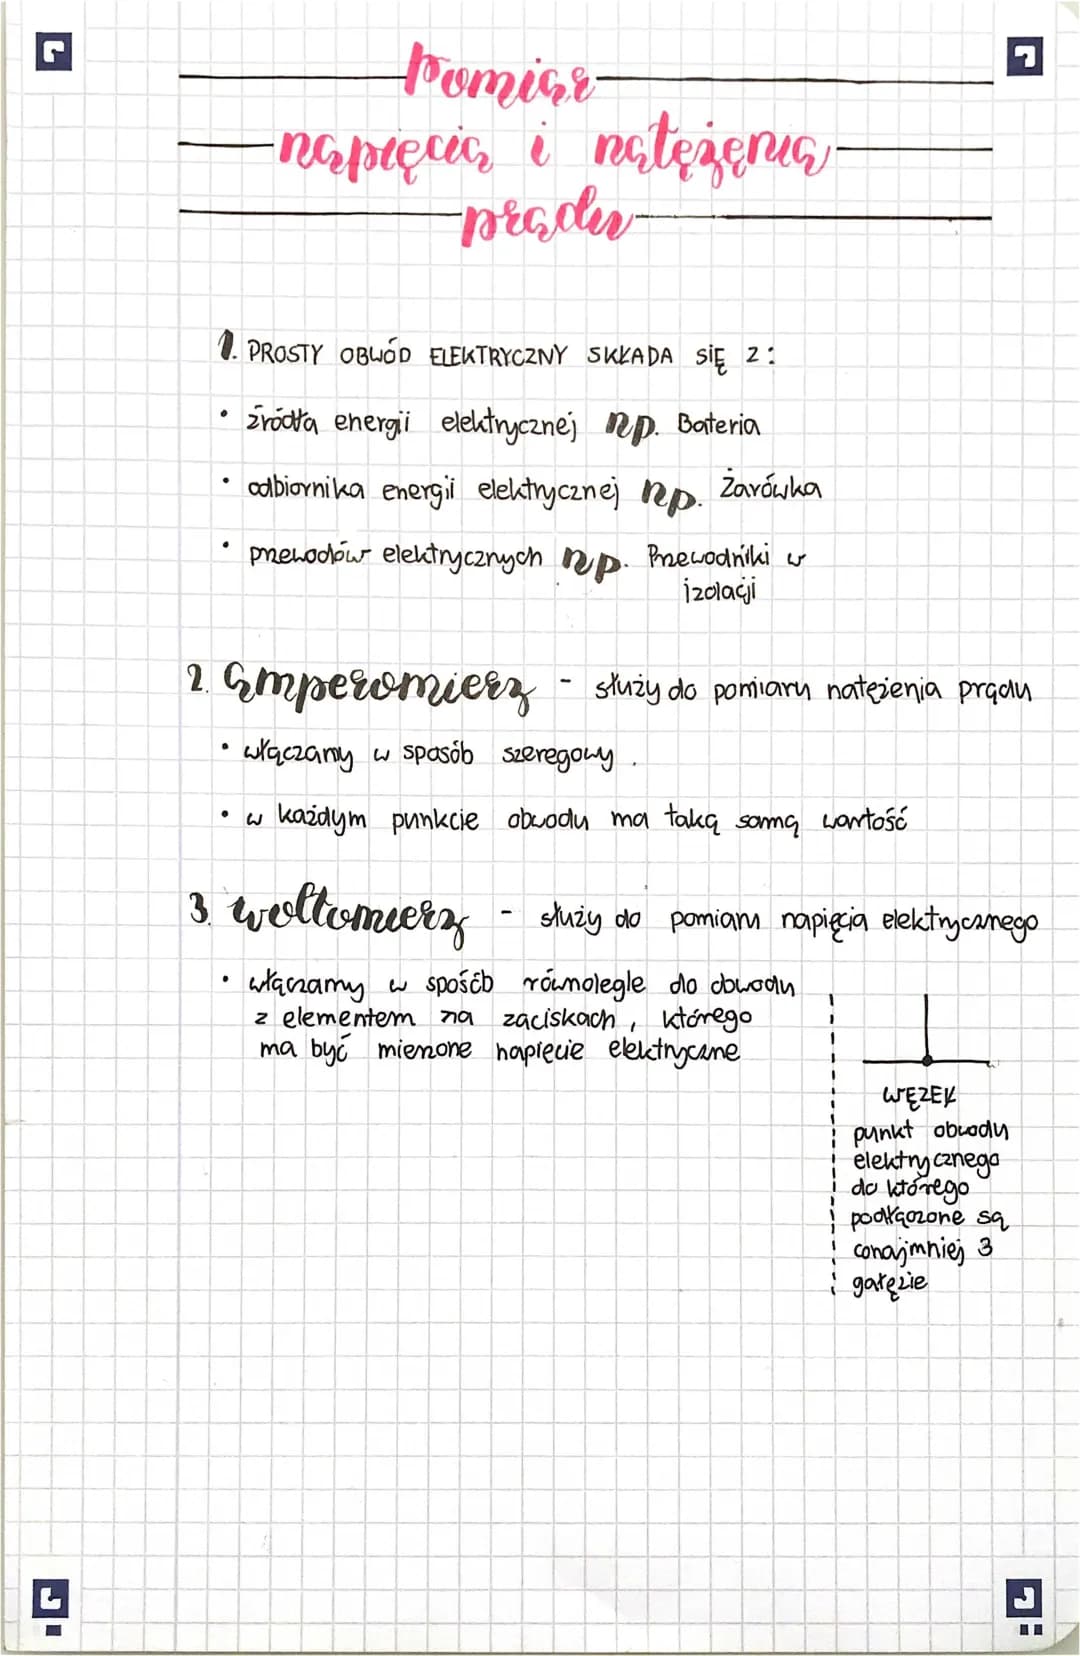 Pomiar
napięcia i natężenia
prądu
1. PROSTY OBWÓD ELEKTRYCZNY SKŁADA SIĘ Z:
• źródła energii elektrycznej np. Bateria
• odbiornika energii elektrycznej np. Żarówka
• przewodów elektrycznych np. Przewodniki w
izolacji
2. amperomierz - służy do pomiaru natężenia prądu
• włączamy w sposób szeregowy.
• w każdym punkcie obwodu ma taką samą wartość
3. woltomierz - służy do pomiaru napięcia elektrycznego
• włączamy w sposób równolegle do obwodu
z elementem na zaciskach, którego
ma być mierzone napięcie elektryczne
WĘZEŁ
punkt obwodu
elektrycznego
do którego
podłączone są
conajmniej 3
gałęzie